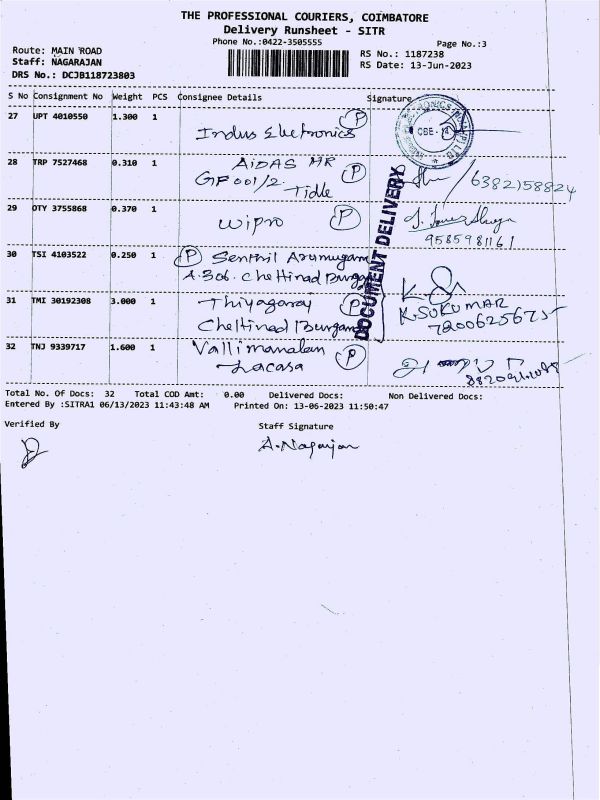 THE PROFESSIONAL COURIERS, COIMBATORE
Delivery Runsheet - SITR
Phone No.:0422-3505555
Page No.:3
Route: MAIN ROAD
RS No.: 1187238
Staff: NAGARAJAN
RS Date: 13-Jun-2023
DRS No.: DCJB118723803
S No Consignment No Weight PCS Consignee Details Signature
27 UPT 4010550 1.300 1 Indus Electronics P
CBE - 14
28 TRP 7527468 0.310 1 AiDAS HR P
GF 001/2 Tidle
6382158824
29 OTY 3755868 0.370 1 wipro P
9585981161
30 TSI 4103522 0.250 1 P Senthil Arumugam
A-306. Chettinad
31 TMI 30192308 3.000 1 Thiyagaraj P
K.SUKUMAR
Chettinad
7200625675
32 TNJ 9339717 1.600 1 Vallimanalan P
Lacasa
DOCUMENT DELIVERY
Total No. Of Docs: 32 Total COD Amt: 0.00 Delivered Docs: Non Delivered Docs:
Entered By :SITRA1 06/13/2023 11:43:48 AM Printed On: 13-06-2023 11:50:47
Verified By Staff Signature
A.Nagarjan